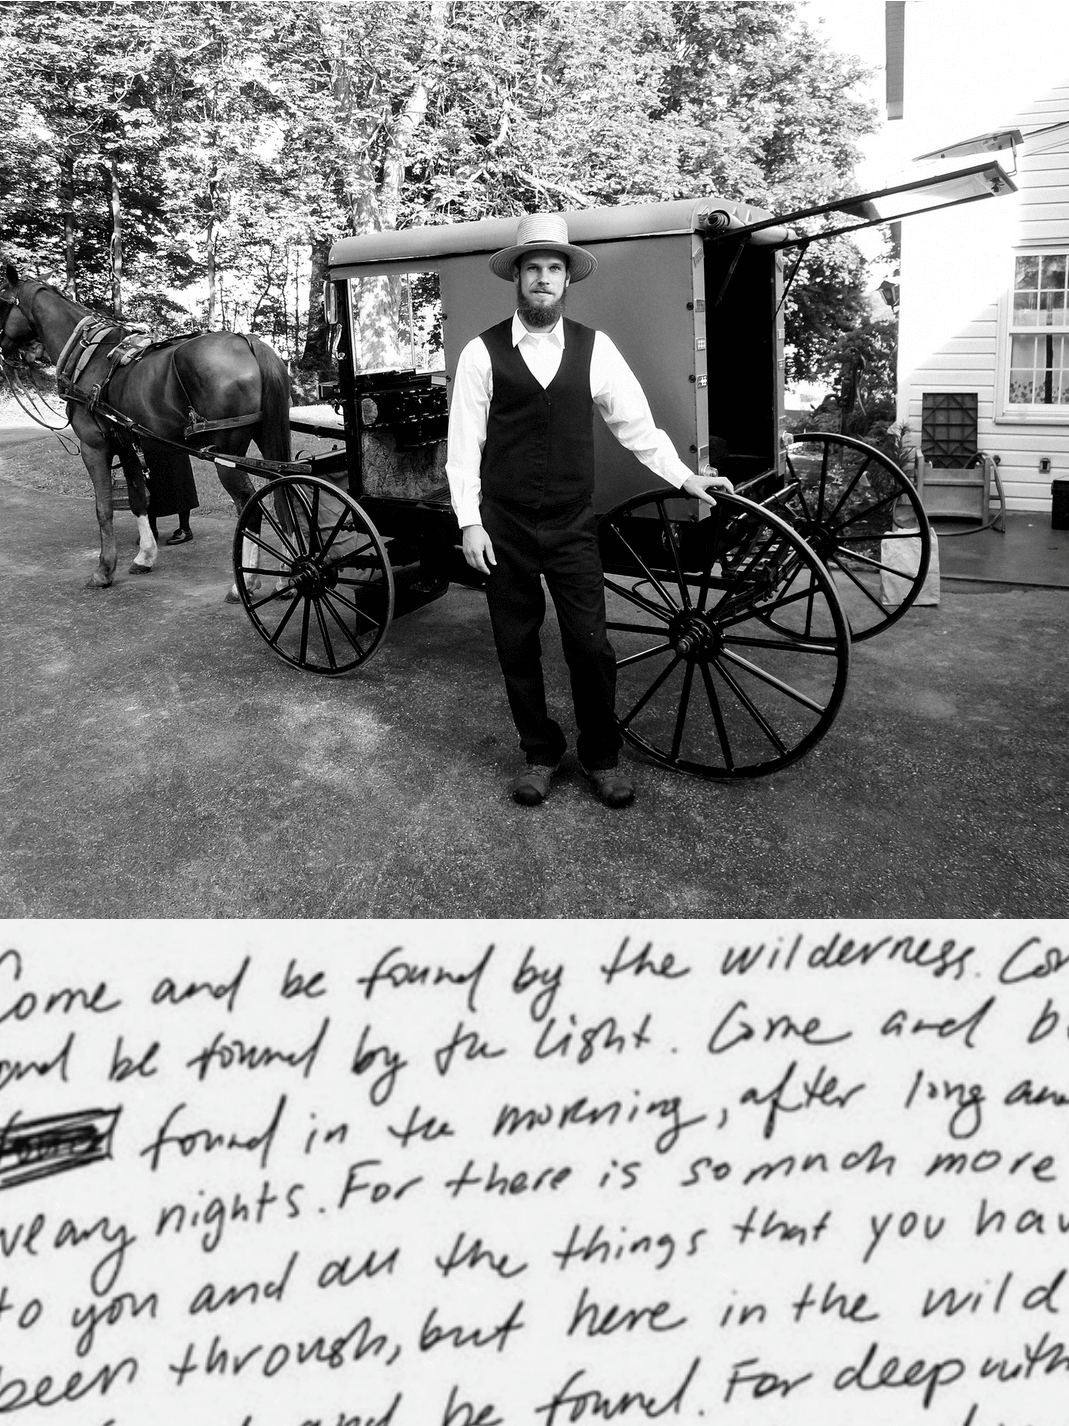 Come and be found by the wilderness. Com
and be found by the light. Come and be
found in the morning, after long and
weary nights. For there is so much more
to you and all the things that you hav
been through, but here in the wild
and be found. For deep with